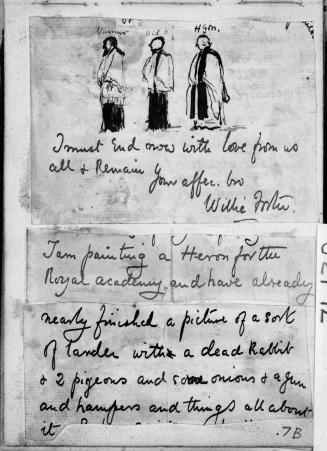 Old
Hgon.
I must End now with love from us
all & Remain
your affec. bro
Willie Foster.
I am painting a Heron for the
Royal academy and have already
nearly finished a picture of a sort
of larder with a dead Rabbit
& 2 pigeons and some onions & a gun
and hampers and things all about
it
.7B